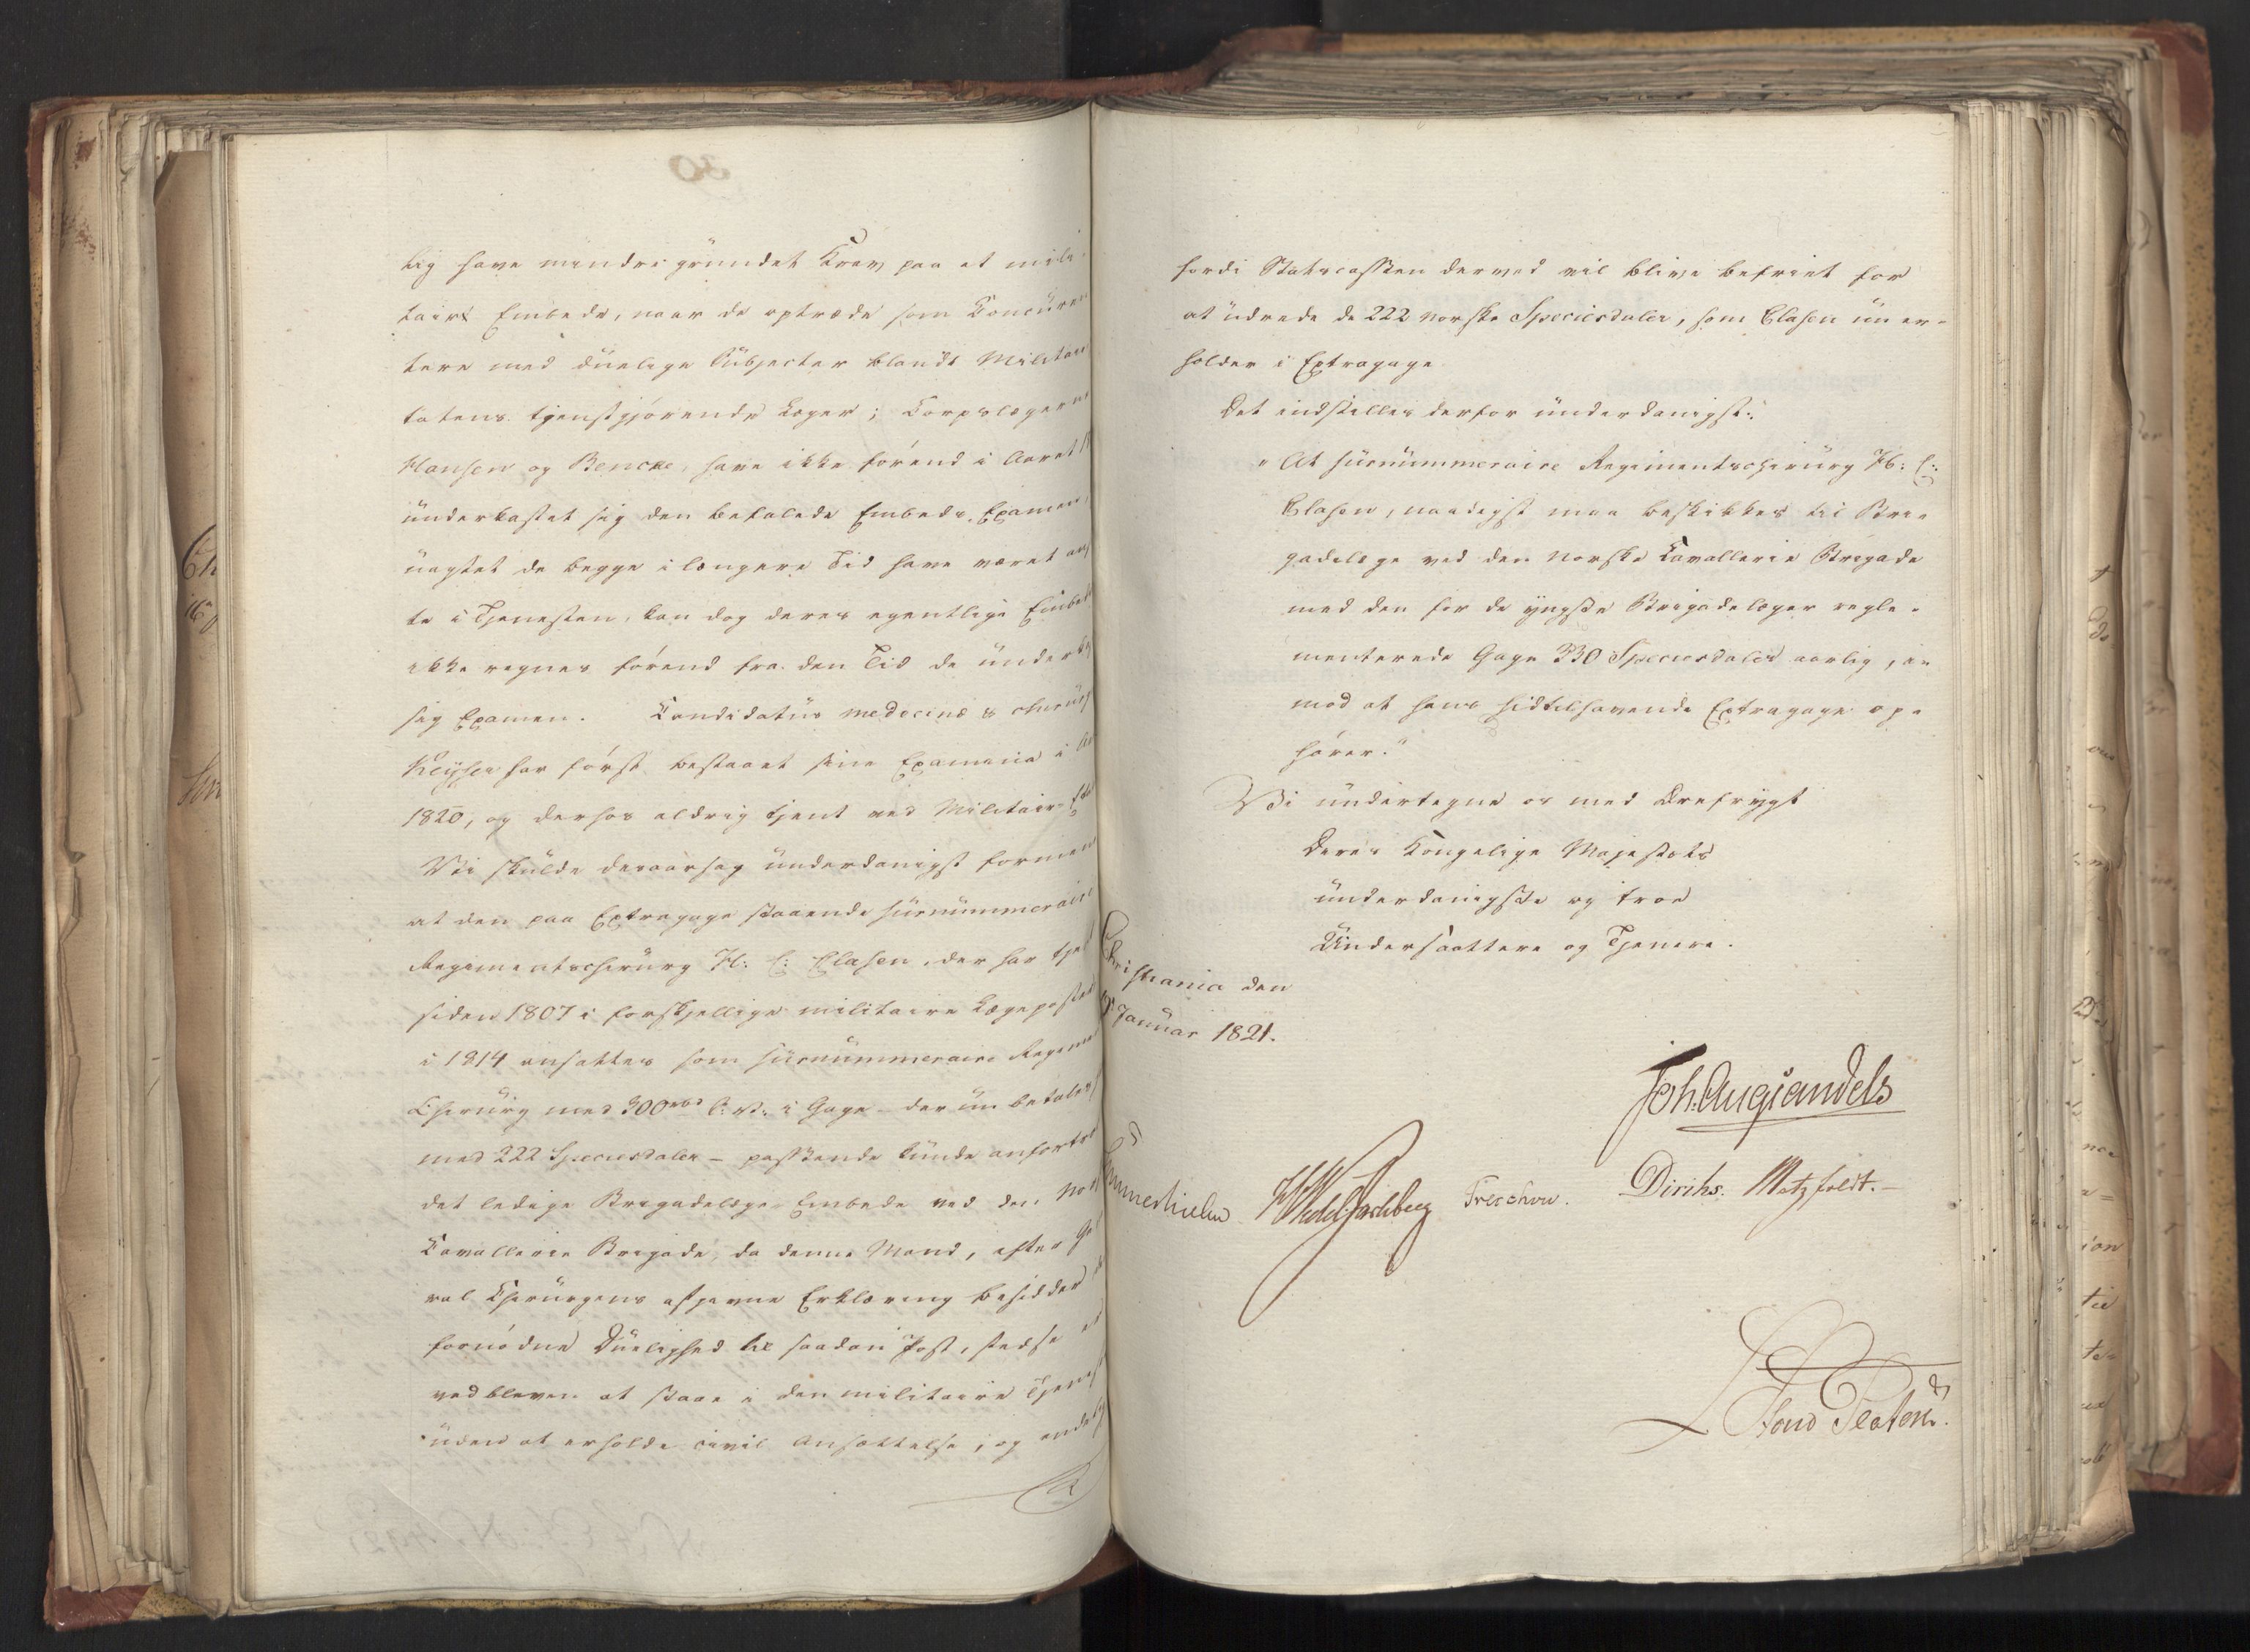 lig have mindre grundet Krav paa et mili-
tairt Embede, naar de optræde som Concuren-
tere med duelige Subjecter blandt Militair
tatens tjenstgjørende Læger; Corpslægerne
Hansen og Bencke, have ikke førend i Aaret
underkastet sig den befalede Embeds-Examen,
uagtet de begge i længere Tid have været an
te i Tjenesten, kan dog deres egentlige Embed
ikke regnes førend fra den Tid de underk
sig Examen. Candidatus medecinæ & chirurg
Keyser har først bestaaet sine Examina i Aa
1820, og derhos aldrig tjent ved Militair-Eta
Vi skulde desaarsag underdanigst formene
at den paa Extragage staaende surnummeraire
Regimentschirurg H: C: Clasen, der har tjent
siden 1807 i forskjellige militaire Lægeposter
i 1814 ansattes som surnummeraire Regiments
Chirurg med 300 rbd S.V. i Gage - der nu betales
med 222 Speciesdaler - passende kunde anfortroes
det ledige Brigadelæge-Embede ved den Nor
Cavallerie Brigade, da denne Mand, efter Ge
ral Chirurgens afgivne Erklæring besidder
fornødne Duelighed til saadan Post, stedse
vedbleven at staae i den militaire Tjeneste
uden at erholde civil Ansættelse; og endelig
fordi Statscassen derved vil blive befriet for
at udrede de 222 norske Speciesdaler, som Clasen nu er-
holder i Extragage
Det indstilles derfor underdanigst:
"At surnummeraire Regimentschirurg H: C:
Clasen, naadigst maa beskikkes til Bri-
gadelæge ved den norske Cavallerie Brigade
med den for de yngste Brigadelæger regle-
menterede Gage 330 Speciesdaler aarlig, i-
mod at hans hidtilhavende Extragage op-
hører."
Vi undertegne os med Ærefrygt
Deres Kongelige Majestæts
underdanigste og troe
Undersaattere og Tjenere.
Christiania den
Januar 1821.
Joh. Aug. Sandels
Sommerhielm Wedel Jarlsberg Treschow. Diriks. Motzfeldt.
von Platen.